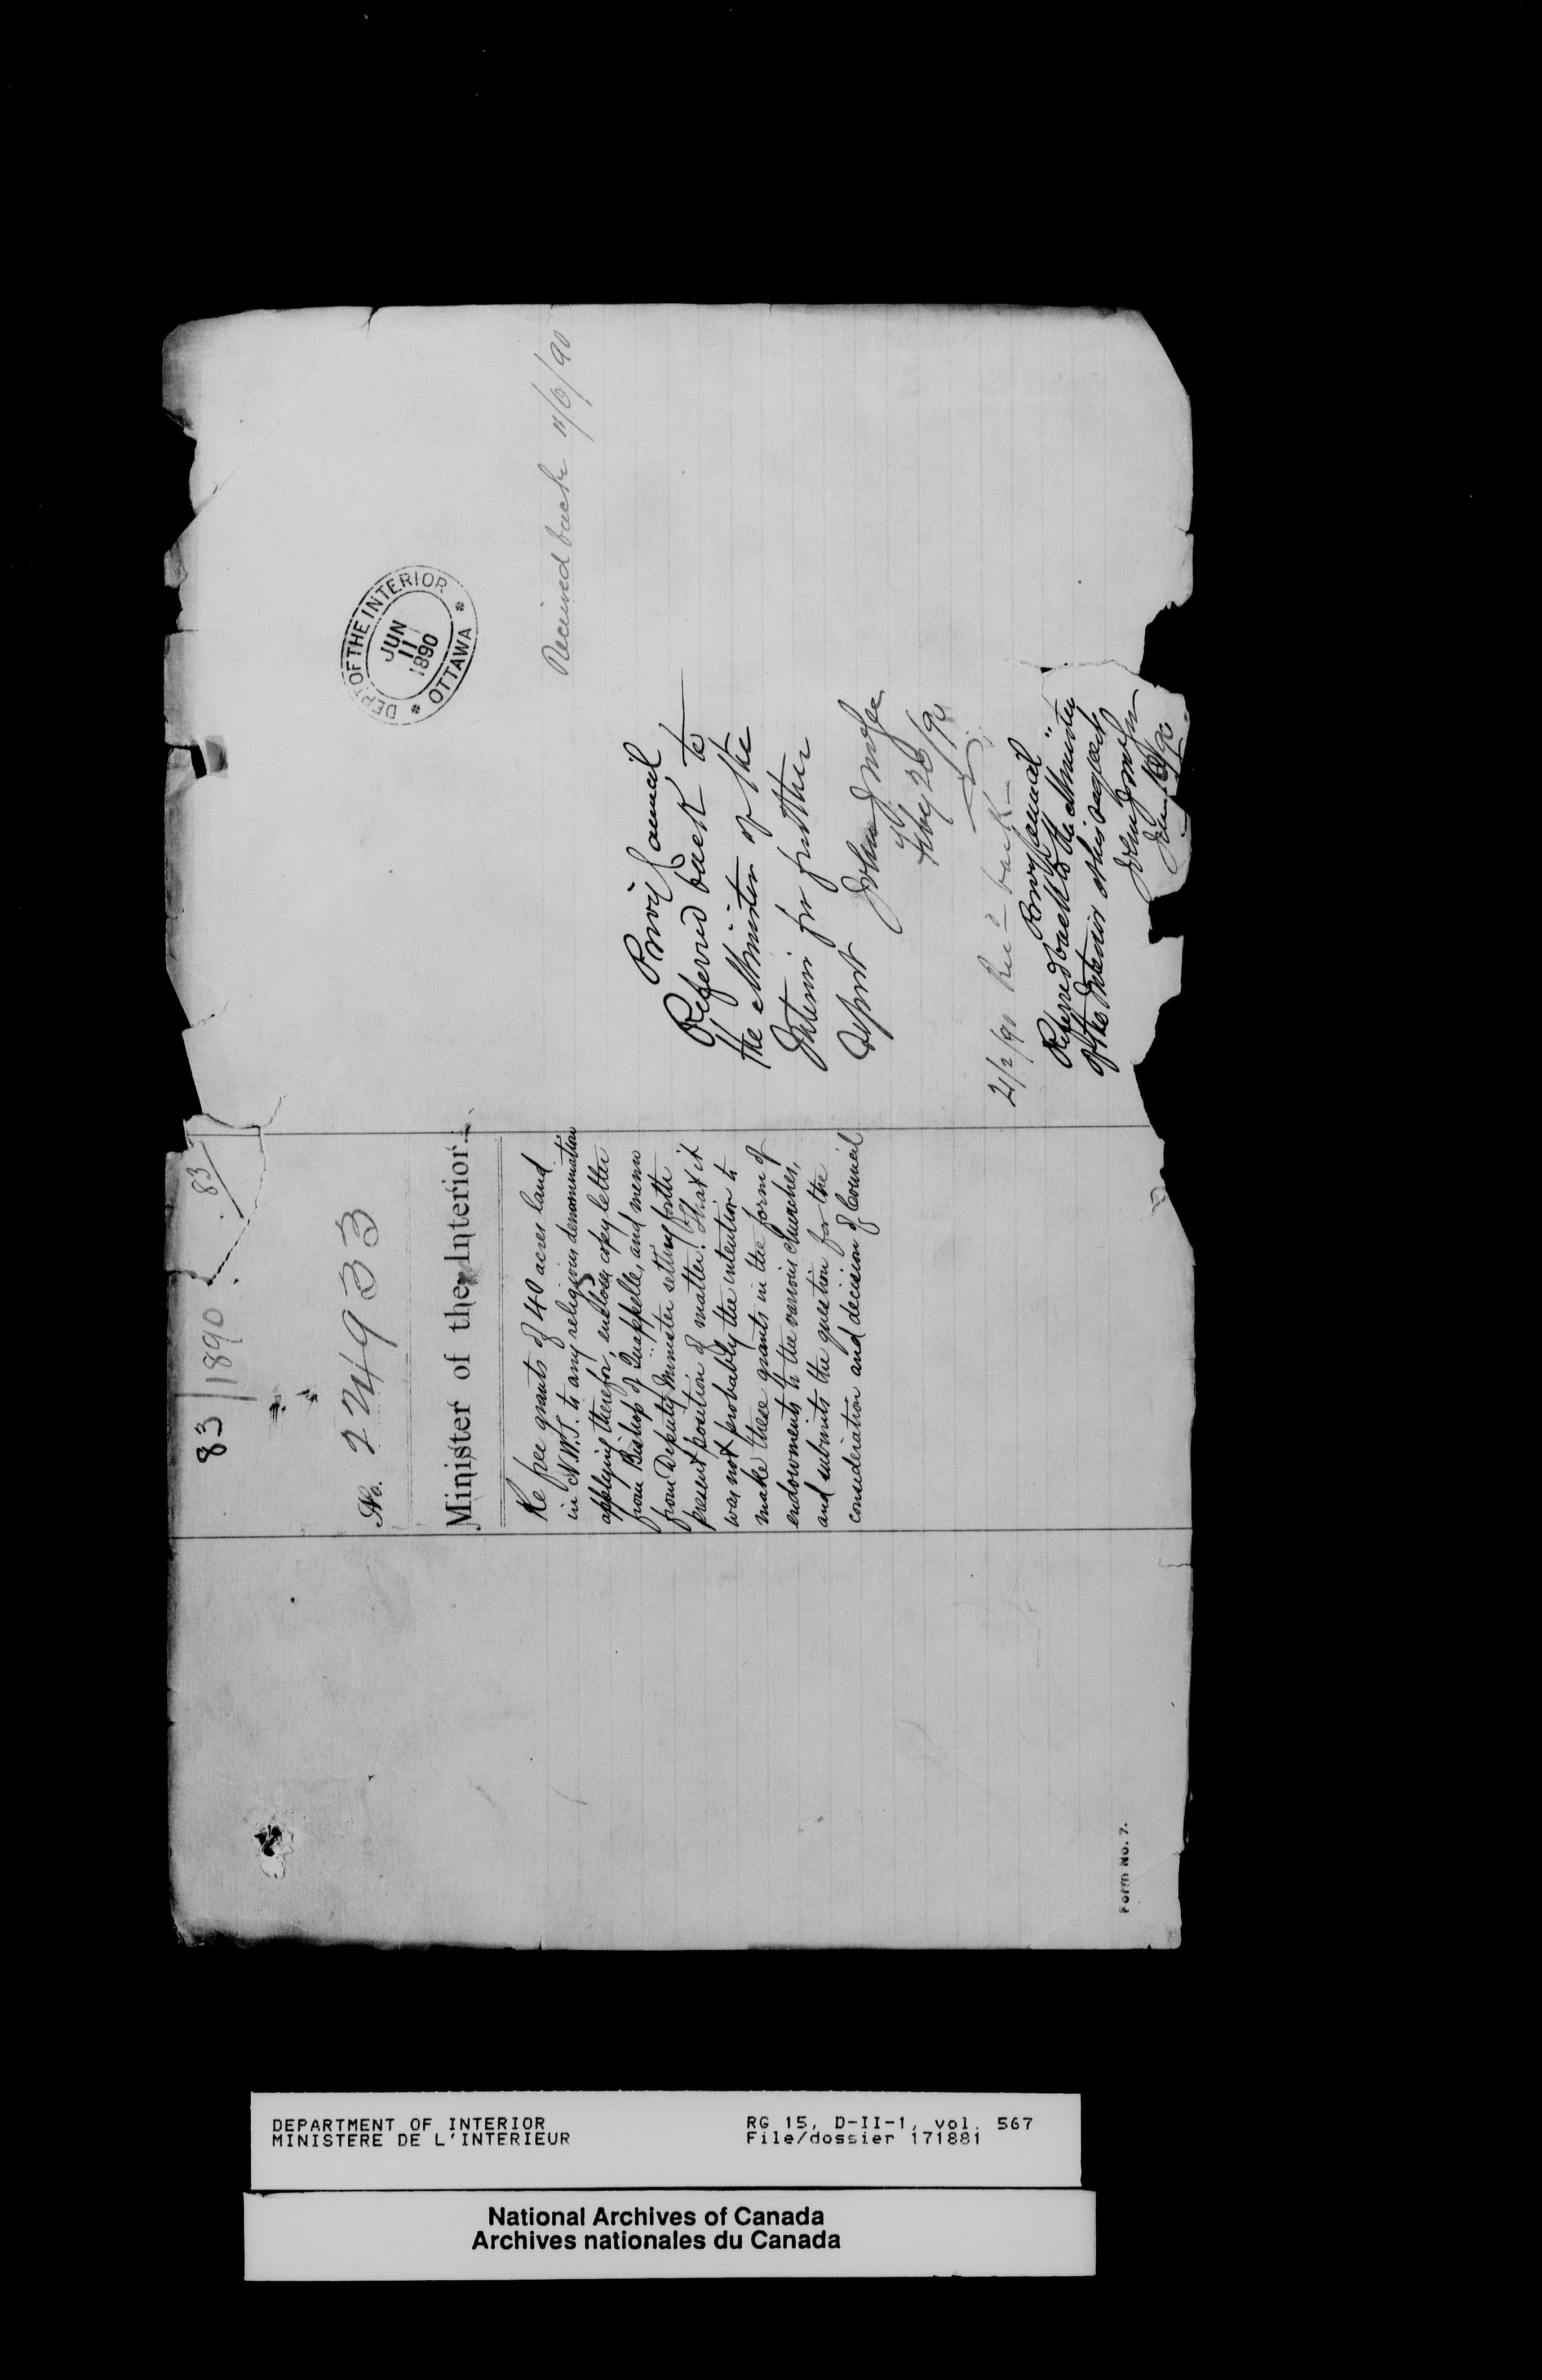 83/1890
83/
No. 224933
Minister of the Interior.
Re free grants of 40 acres land
in N.W.T. to any religious denomination
applying therefor, encloses copy letter
from Bishop of Qu'appelle, and memo
from Deputy Minister setting forth
present position of matter. That it
was not probably the intention to
make these grants in the form of
endowments to the various churches,
and submits the question for the
consideration and decision of Council
DEPT OF THE INTERIOR
JUN
11
1890
OTTAWA
Received back 11/6/90
Privy Council
Referred back to
the Minister of the
Interior for further
report
John J McGee
Feby 20/90
21/2/90 Recd back
Privy Council
Referred back to the Minister
of the Interior at his request
John J McGee
Form No. 7.
DEPARTMENT OF INTERIOR
MINISTERE DE L'INTERIEUR
RG 15, D-II-1, vol. 567
File/dossier 171881
National Archives of Canada
Archives nationales du Canada